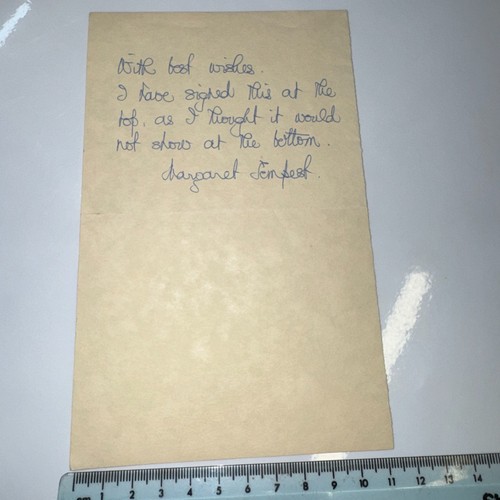 With best wishes.
I have signed this at the
top, as I thought it would
not show at the bottom.
Margaret Tempest.
cm 1 2 3 4 5 6 7 8 9 10 11 12 13 14